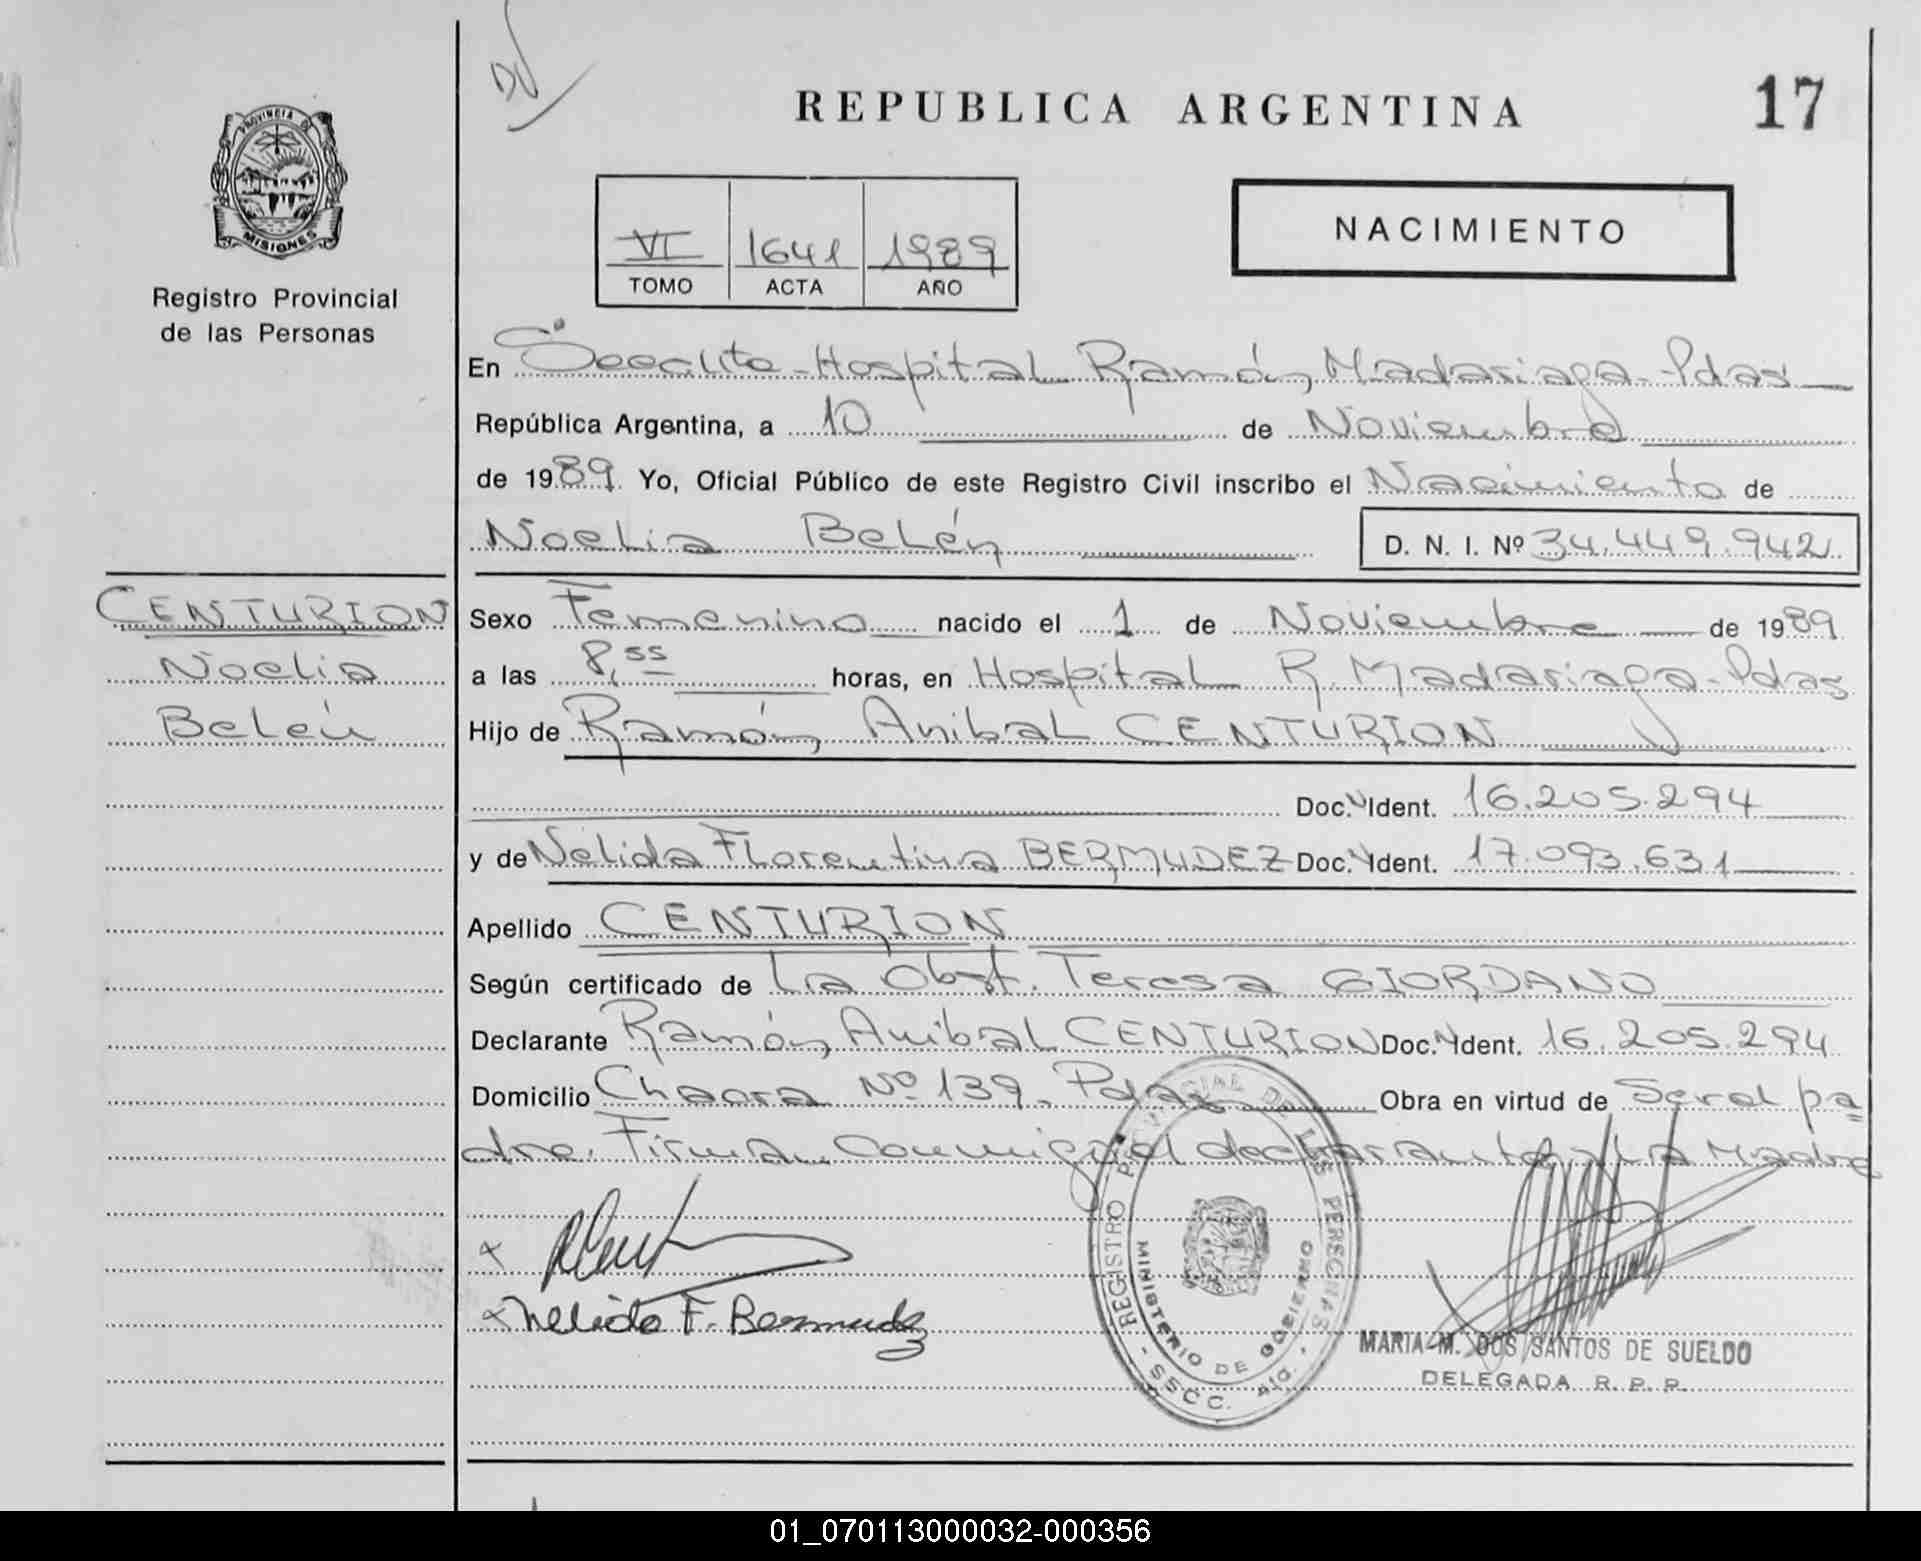 DV
REPUBLICA ARGENTINA
17
PROVINCIA DE
MISIONES
Registro Provincial
de las Personas
VI 1641 1989
TOMO ACTA AÑO
NACIMIENTO
En Seccalita-Hospital Ramón Madariaga-Pdas
República Argentina, a 10 de Noviembre
de 1989. Yo, Oficial Público de este Registro Civil inscribo el Nacimiento de
Noelia Belén D. N. I. Nº 34.449.942
CENTURION
Noelia
Belén
Sexo Femenino nacido el 1 de Noviembre de 1989
a las 8,55 horas, en Hospital R. Madariaga-Pdas
Hijo de Ramón Anibal CENTURION
Doc. N Ident. 16.205.294
y de Nélida Florentina BERMUDEZ Doc. N Ident. 17.093.631
Apellido CENTURION
Según certificado de La Obst. Teresa GIORDANO
Declarante Ramón Anibal CENTURION Doc. N Ident. 16.205.294
Domicilio Chacra Nº 139. Pdas Obra en virtud de Ser el pa=
dre. Firman Conmigo el declarante y La Madre
x
x Nelida F. Bermudez
REGISTRO PROVINCIAL DE LAS PERSONAS
MINISTERIO DE GOBIERNO
- SSCC. -
MARIA M. DOS SANTOS DE SUELDO
DELEGADA R. P. P.
01_070113000032-000356